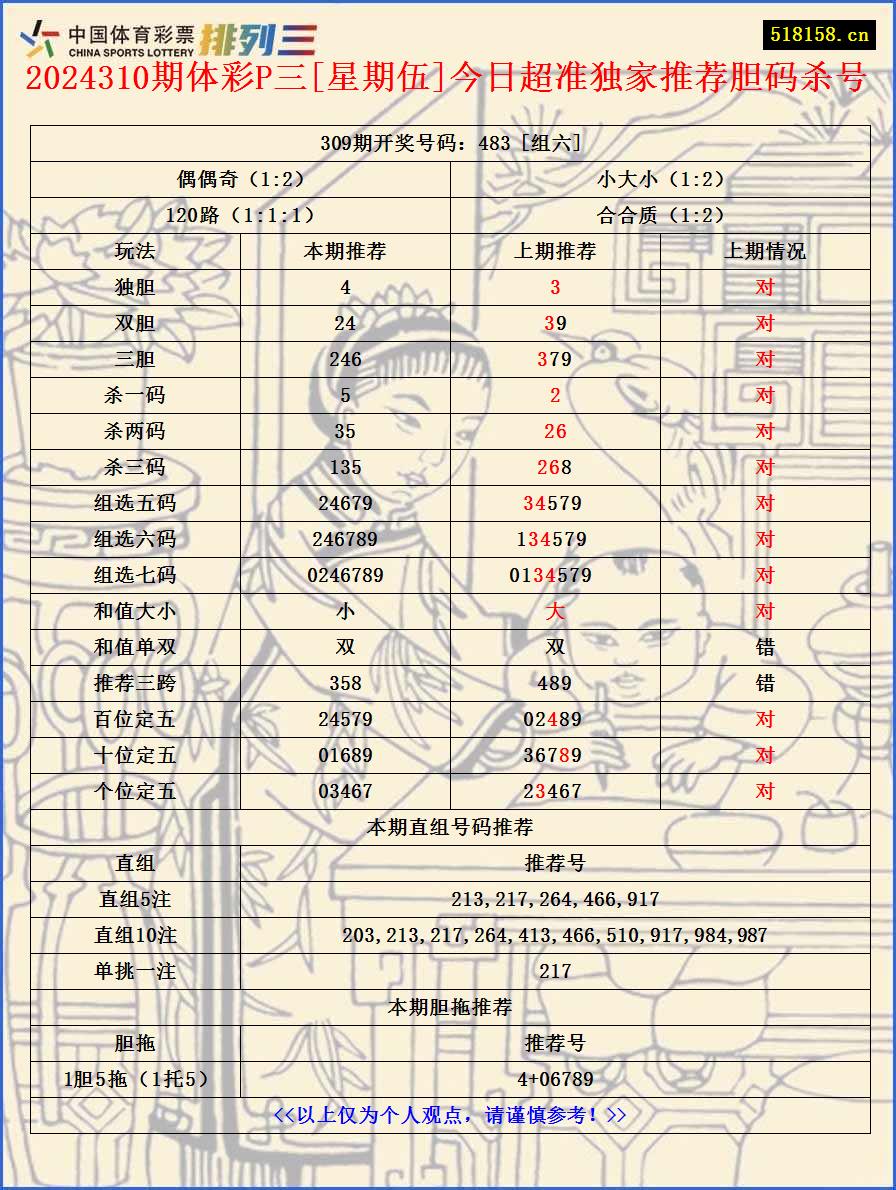 中国体育彩票
CHINA SPORTS LOTTERY
排列三
518158.cn
2024310期体彩P三[星期伍]今日超准独家推荐胆码杀号
309期开奖号码：483 [组六]
偶偶奇（1:2） 小大小（1:2）
120路（1:1:1） 合合质（1:2）
玩法 本期推荐 上期推荐 上期情况
独胆 4 3 对
双胆 24 39 对
三胆 246 379 对
杀一码 5 2 对
杀两码 35 26 对
杀三码 135 268 对
组选五码 24679 34579 对
组选六码 246789 134579 对
组选七码 0246789 0134579 对
和值大小 小 大 对
和值单双 双 双 错
推荐三跨 358 489 错
百位定五 24579 02489 对
十位定五 01689 36789 对
个位定五 03467 23467 对
本期直组号码推荐
直组 推荐号
直组5注 213,217,264,466,917
直组10注 203,213,217,264,413,466,510,917,984,987
单挑一注 217
本期胆拖推荐
胆拖 推荐号
1胆5拖（1托5） 4+06789
<<以上仅为个人观点，请谨慎参考！>>